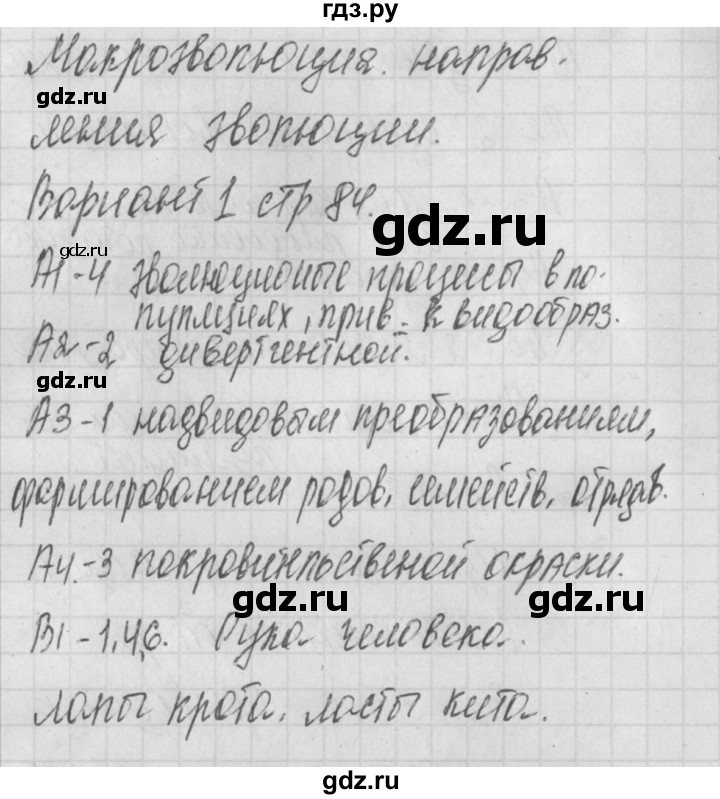 гдз.ру
Макроэволюция. направ-
gdz.ru
ления эволюции.
Вариант 1 стр 84.
gdz.ru
gdz.ru
А1-4 эволюционые процессы в по-
пуляциях, прив. к видообраз.
А2-2 дивергентной.
gdz.ru
А3-1 надвидовым преобразованиям,
формированием родов, семейств, отрядов.
А4.-3 покровительственой окраски.
gdz.ru gdz.ru
В1-1,4,6. Рука человека.
лапы крота. ласты кита.
gdz.ru
gdz.ru